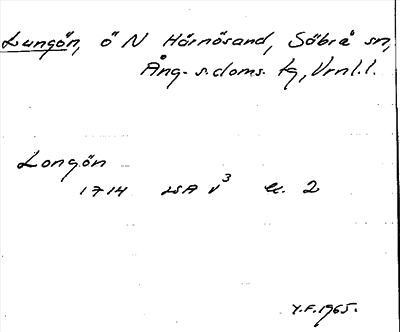 Lungön, ö N Härnösand, Säbrå sn,
Ång. s. doms. tg, Vrnl. l.
Longön
1714 LSA v³ U. 2
Y.F. 1965.